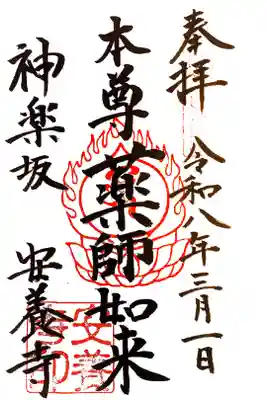 奉拝 令和八年三月一日
本尊 薬師如来
神楽坂 安養寺